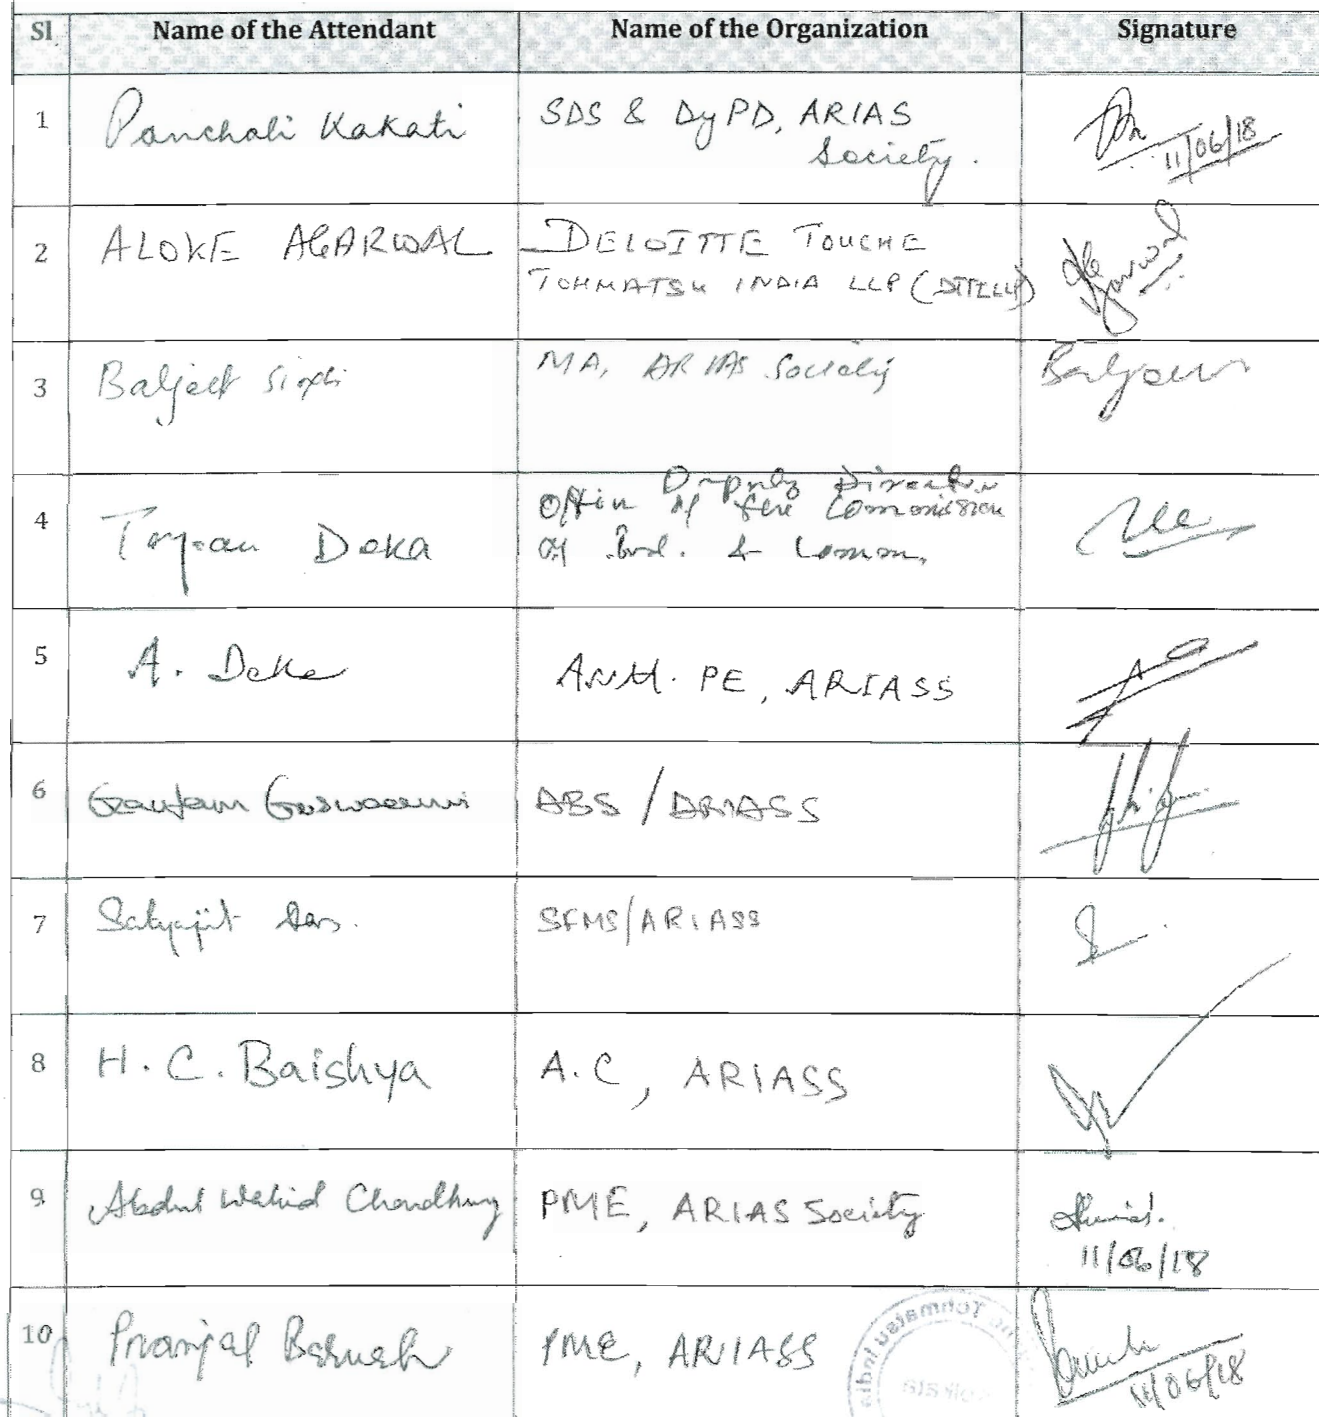 Sl Name of the Attendant Name of the Organization Signature
1 Panchali Kakati SDS & Dy PD, ARIAS
Society.
11/06/18
2 ALOKE AGARWAL DELOITTE TOUCHE
TOHMATSU INDIA LLP (DTTILLP)
Agarwal
3 Baljeet Singh MA, ARIAS Society
4 Deka Deputy Director
Office of the Commission
of Ind. & Comm.
5 A. Deka ANM. PE, ARIASS
6 Gautam Goswami ABS / ARIASS
7 Satyajit Das. SFMS/ARIASS
8 H. C. Baishya A.C, ARIASS
9 Abdul Wahid Choudhury PME, ARIAS Society
11/06/18
10 Pranjal Baruah PME, ARIASS
11/06/18
Tohmatsu India